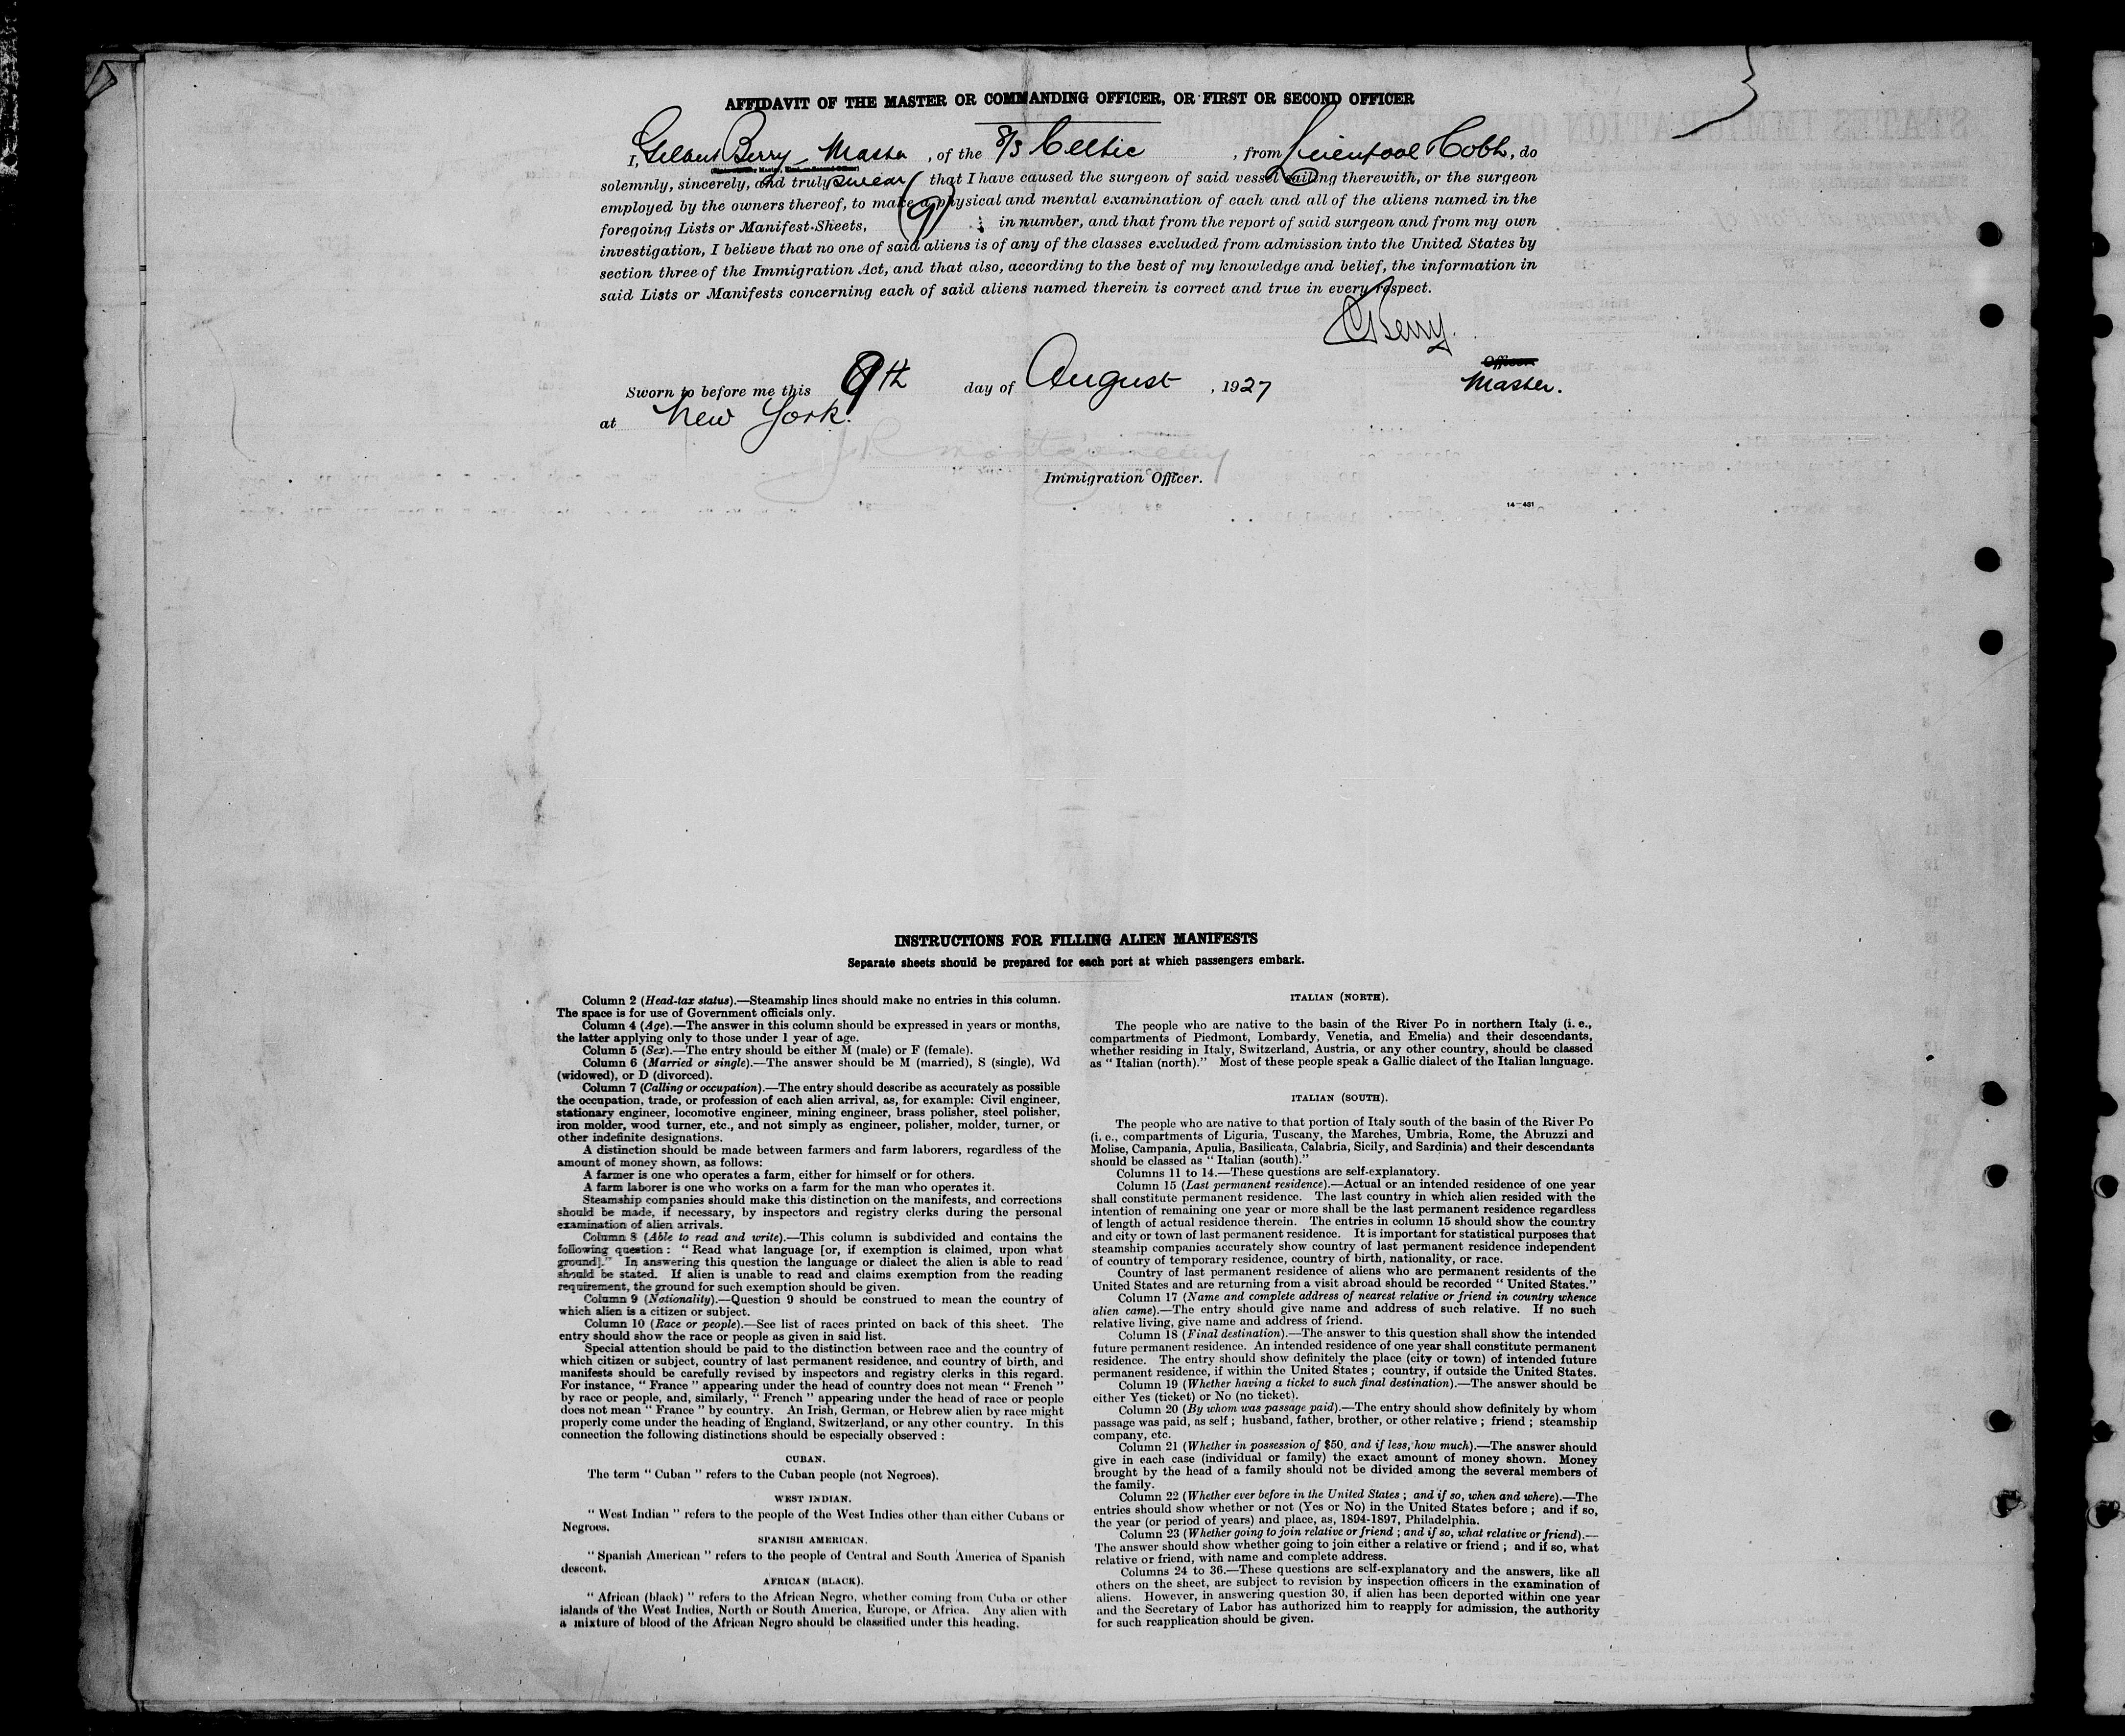 AFFIDAVIT OF THE MASTER OR COMMANDING OFFICER, OR FIRST OR SECOND OFFICER
I, Gilbert Berry Master, of the S/S Celtic, from Liverpool Cobh, do
solemnly, sincerely, and truly swear that I have caused the surgeon of said vessel sailing therewith, or the surgeon
employed by the owners thereof, to make a physical and mental examination of each and all of the aliens named in the
foregoing Lists or Manifest Sheets, (9) in number, and that from the report of said surgeon and from my own
investigation, I believe that no one of said aliens is of any of the classes excluded from admission into the United States by
section three of the Immigration Act, and that also, according to the best of my knowledge and belief, the information in
said Lists or Manifests concerning each of said aliens named therein is correct and true in every respect.
GBerry.
Officer
Master.
Sworn to before me this 9th day of August, 1927
at New York.
J R Montgomery
Immigration Officer.
14—431
INSTRUCTIONS FOR FILLING ALIEN MANIFESTS
Separate sheets should be prepared for each port at which passengers embark.
Column 2 (Head-tax status).—Steamship lines should make no entries in this column.
The space is for use of Government officials only.
Column 4 (Age).—The answer in this column should be expressed in years or months,
the latter applying only to those under 1 year of age.
Column 5 (Sex).—The entry should be either M (male) or F (female).
Column 6 (Married or single).—The answer should be M (married), S (single), Wd
(widowed), or D (divorced).
Column 7 (Calling or occupation).—The entry should describe as accurately as possible
the occupation, trade, or profession of each alien arrival, as, for example: Civil engineer,
stationary engineer, locomotive engineer, mining engineer, brass polisher, steel polisher,
iron molder, wood turner, etc., and not simply as engineer, polisher, molder, turner, or
other indefinite designations.
A distinction should be made between farmers and farm laborers, regardless of the
amount of money shown, as follows:
A farmer is one who operates a farm, either for himself or for others.
A farm laborer is one who works on a farm for the man who operates it.
Steamship companies should make this distinction on the manifests, and corrections
should be made, if necessary, by inspectors and registry clerks during the personal
examination of alien arrivals.
Column 8 (Able to read and write).—This column is subdivided and contains the
following question: "Read what language [or, if exemption is claimed, upon what
ground]." In answering this question the language or dialect the alien is able to read
should be stated. If alien is unable to read and claims exemption from the reading
requirement, the ground for such exemption should be given.
Column 9 (Nationality).—Question 9 should be construed to mean the country of
which alien is a citizen or subject.
Column 10 (Race or people).—See list of races printed on back of this sheet. The
entry should show the race or people as given in said list.
Special attention should be paid to the distinction between race and the country of
which citizen or subject, country of last permanent residence, and country of birth, and
manifests should be carefully revised by inspectors and registry clerks in this regard.
For instance, "France" appearing under the head of country does not mean "French"
by race or people, and, similarly, "French" appearing under the head of race or people
does not mean "France" by country. An Irish, German, or Hebrew alien by race might
properly come under the heading of England, Switzerland, or any other country. In this
connection the following distinctions should be especially observed:
CUBAN.
The term "Cuban" refers to the Cuban people (not Negroes).
WEST INDIAN.
"West Indian" refers to the people of the West Indies other than either Cubans or
Negroes.
SPANISH AMERICAN.
"Spanish American" refers to the people of Central and South America of Spanish
descent.
AFRICAN (BLACK).
"African (black)" refers to the African Negro, whether coming from Cuba or other
islands of the West Indies, North or South America, Europe, or Africa. Any alien with
a mixture of blood of the African Negro should be classified under this heading.
ITALIAN (NORTH).
The people who are native to the basin of the River Po in northern Italy (i. e.,
compartments of Piedmont, Lombardy, Venetia, and Emelia) and their descendants,
whether residing in Italy, Switzerland, Austria, or any other country, should be classed
as "Italian (north)." Most of these people speak a Gallic dialect of the Italian language.
ITALIAN (SOUTH).
The people who are native to that portion of Italy south of the basin of the River Po
(i. e., compartments of Liguria, Tuscany, the Marches, Umbria, Rome, the Abruzzi and
Molise, Campania, Apulia, Basilicata, Calabria, Sicily, and Sardinia) and their descendants
should be classed as "Italian (south)."
Columns 11 to 14.—These questions are self-explanatory.
Column 15 (Last permanent residence).—Actual or an intended residence of one year
shall constitute permanent residence. The last country in which alien resided with the
intention of remaining one year or more shall be the last permanent residence regardless
of length of actual residence therein. The entries in column 15 should show the country
and city or town of last permanent residence. It is important for statistical purposes that
steamship companies accurately show country of last permanent residence independent
of country of temporary residence, country of birth, nationality, or race.
Country of last permanent residence of aliens who are permanent residents of the
United States and are returning from a visit abroad should be recorded "United States."
Column 17 (Name and complete address of nearest relative or friend in country whence
alien came).—The entry should give name and address of such relative. If no such
relative living, give name and address of friend.
Column 18 (Final destination).—The answer to this question shall show the intended
future permanent residence. An intended residence of one year shall constitute permanent
residence. The entry should show definitely the place (city or town) of intended future
permanent residence, if within the United States; country, if outside the United States.
Column 19 (Whether having a ticket to such final destination).—The answer should be
either Yes (ticket) or No (no ticket).
Column 20 (By whom was passage paid).—The entry should show definitely by whom
passage was paid, as self; husband, father, brother, or other relative; friend; steamship
company, etc.
Column 21 (Whether in possession of $50, and if less, how much).—The answer should
give in each case (individual or family) the exact amount of money shown. Money
brought by the head of a family should not be divided among the several members of
the family.
Column 22 (Whether ever before in the United States; and if so, when and where).—The
entries should show whether or not (Yes or No) in the United States before; and if so,
the year (or period of years) and place, as, 1894-1897, Philadelphia.
Column 23 (Whether going to join relative or friend; and if so, what relative or friend).—
The answer should show whether going to join either a relative or friend; and if so, what
relative or friend, with name and complete address.
Columns 24 to 36.—These questions are self-explanatory and the answers, like all
others on the sheet, are subject to revision by inspection officers in the examination of
aliens. However, in answering question 30, if alien has been deported within one year
and the Secretary of Labor has authorized him to reapply for admission, the authority
for such reapplication should be given.